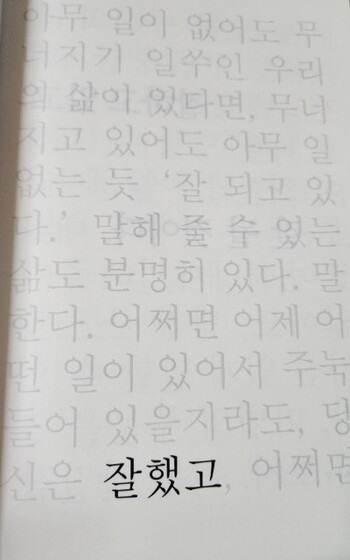 아무 일이 없어도 무
너지기 일쑤인 우리
의 삶이 있다면, 무너
지고 있어도 아무 일
없는 듯 ‘잘 되고 있
다.’ 말해 줄 수 있는
삶도 분명히 있다. 말
한다. 어쩌면 어제 어
떤 일이 있어서 주눅
들어 있을지라도, 당
신은 잘했고, 어쩌면